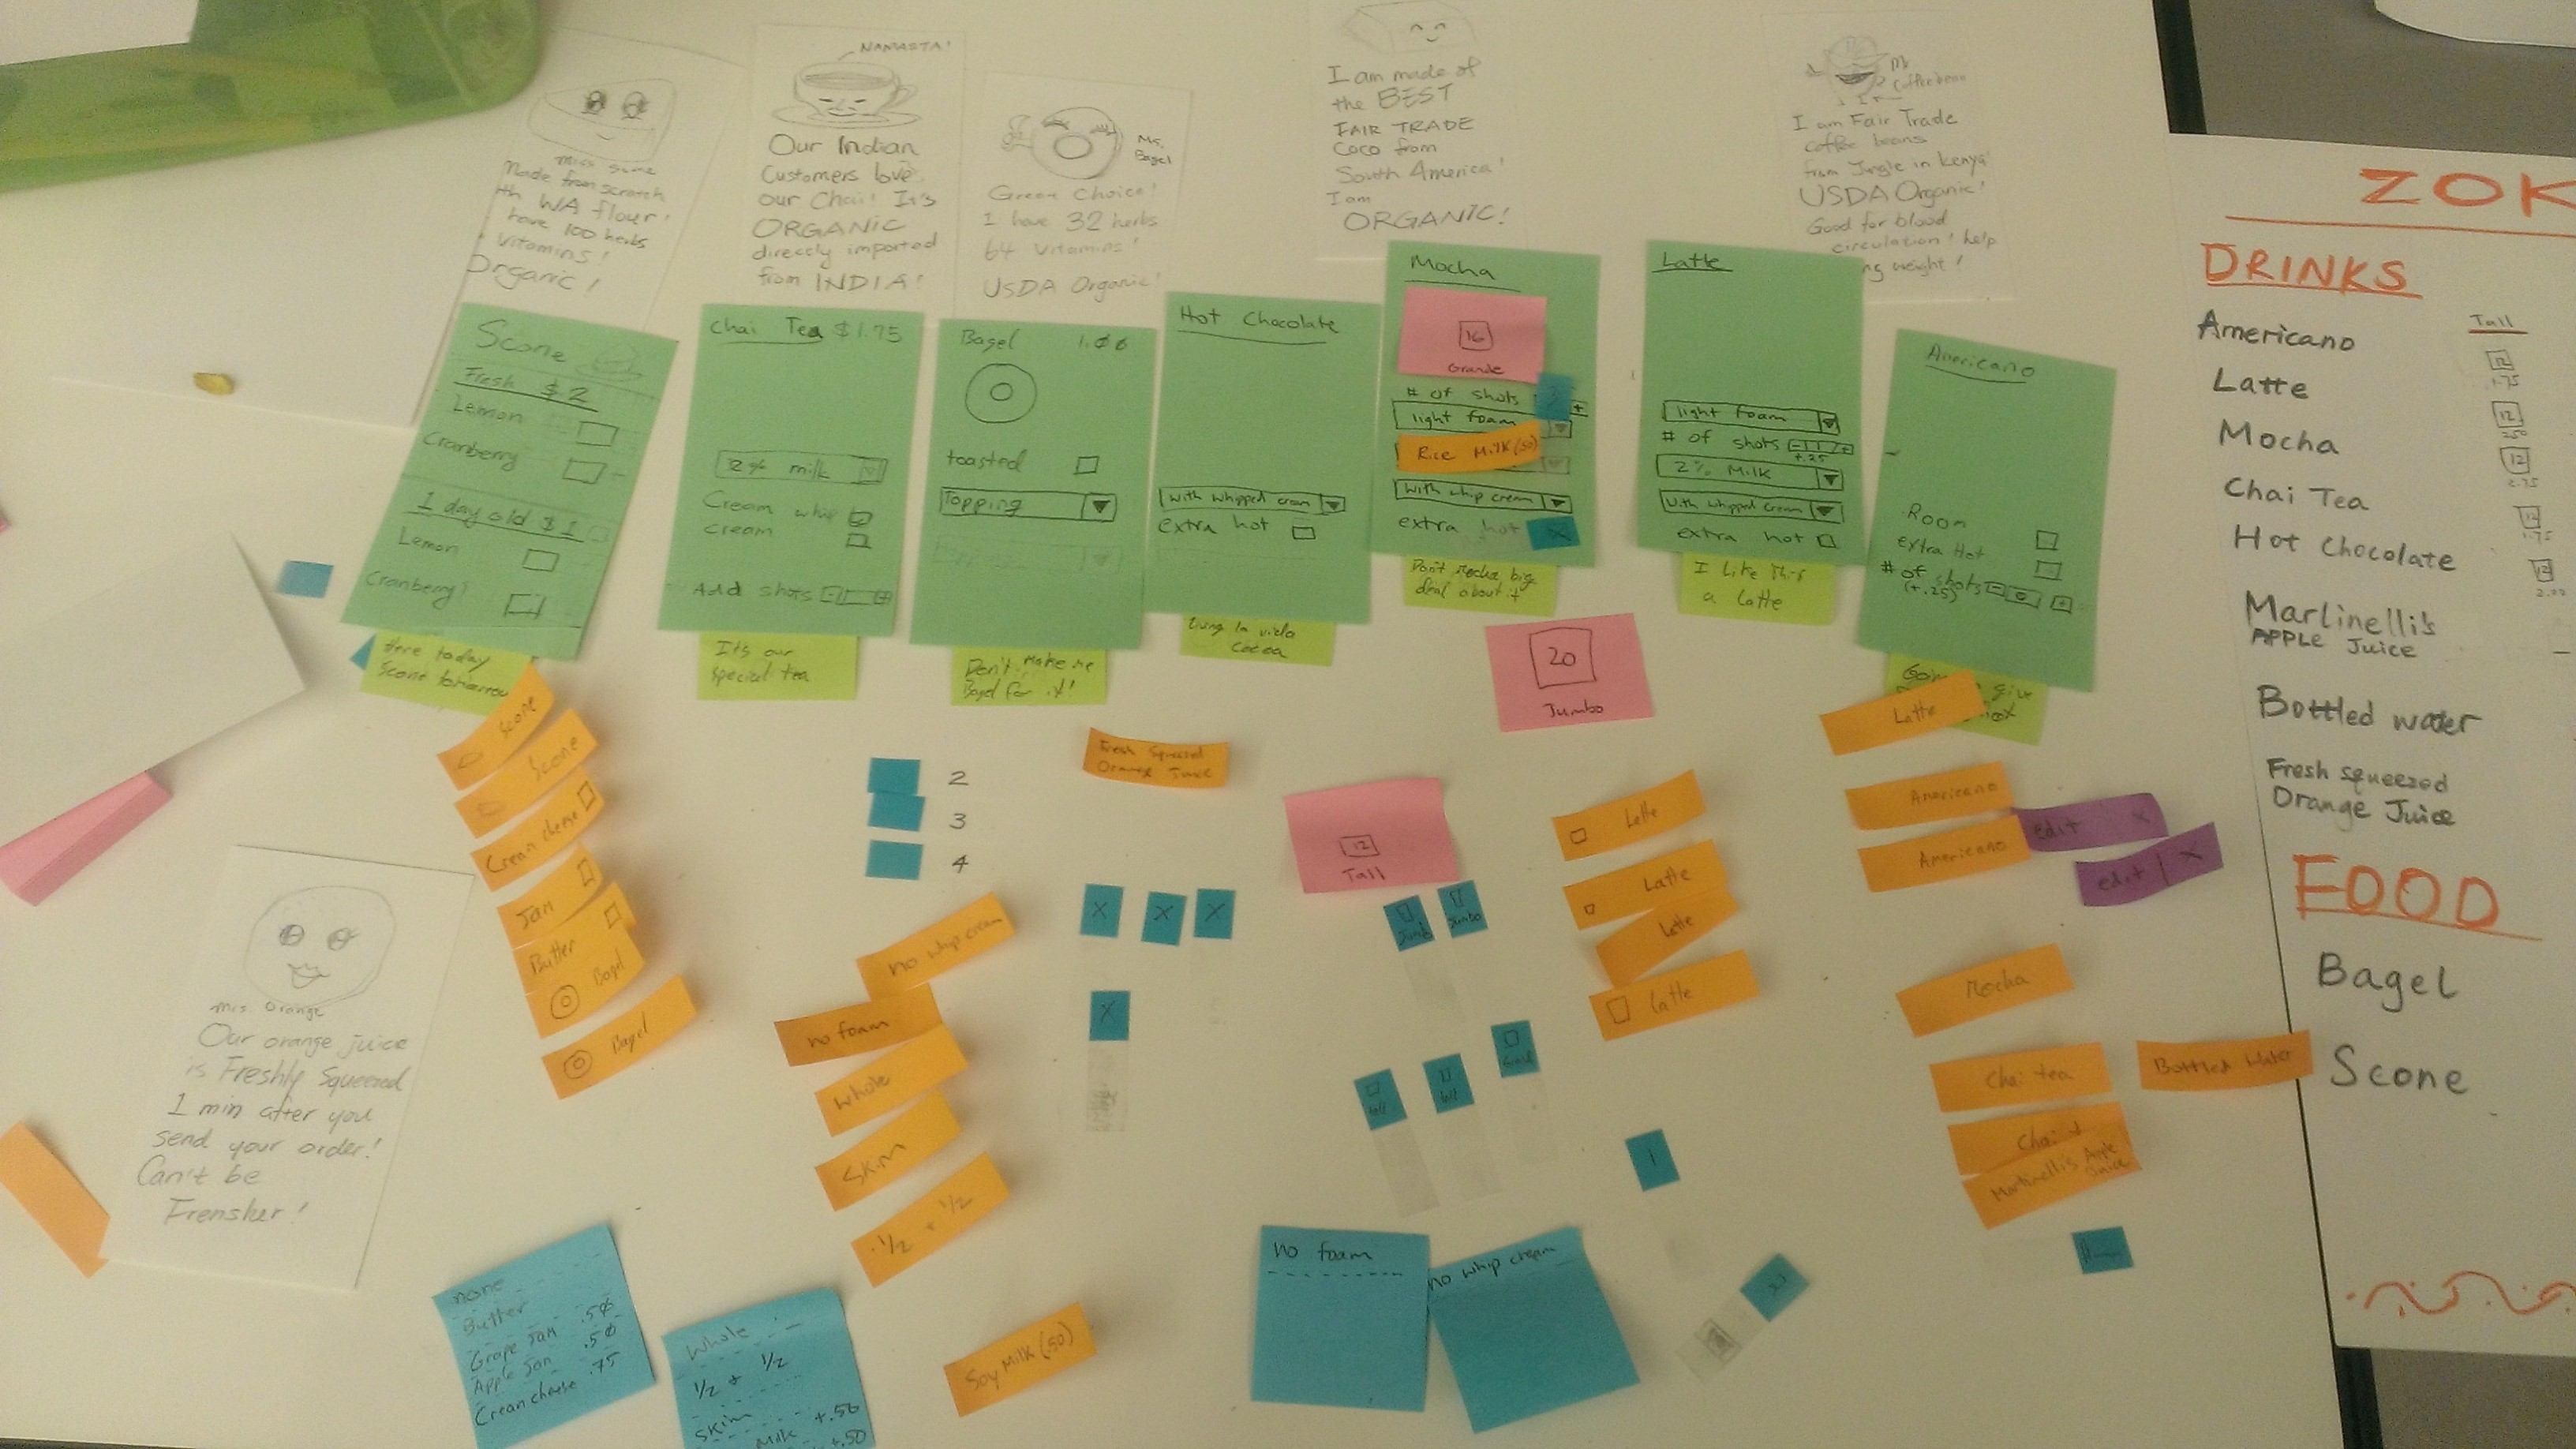 Miss Scone
Made from scratch
with WA flour!
have 100 herbs
Vitamins!
Organic!
NAMASTA!
Our Indian
Customers love
our Chai! It's
ORGANIC
directly imported
from INDIA!
Ms.
Bagel
Green Choice!
I have 32 herbs
64 Vitamins!
USDA Organic!
I am made of
the BEST
FAIR TRADE
Coco from
South America!
I am
ORGANIC!
Mr
Coffee bean
I am Fair Trade
coffee beans
from Jungle in Kenya!
USDA Organic!
Good for blood
circulation! help
ng weight!
Scone
Fresh $2
Lemon
Cranberry
1 day old $1
Lemon
Cranberry
Here today
Scone tomorrow
Chai Tea $1.75
2% milk
Cream whip
cream
Add shots - +
Its our
special tea
Bagel 1.00
toasted
Topping
Don't Make me
Bagel for it!
Hot Chocolate
with whipped cream
extra hot
Living la vida
Cocoa
Mocha
16
Grande
# of shots
+
light foam
Rice Milk (.50)
with whip cream
extra hot
X
Don't Mocha big
deal about it
Latte
light foam
# of shots - 1 +
+.25
2% Milk
with whipped cream
extra hot
I like this
a latte
Americano
Room
extra Hot
# of shots - 0 +
(+.25)
Going
give
Scone
Scone
Cream cheese
Jam
Butter
Bagel
Bagel
2
3
4
no whip cream
no foam
whole
Skim
1/2 + 1/2
Soy Milk (.50)
Fresh Squeezed
Orange Juice
X
X
X
X
20
Jumbo
12
Tall
Jumbo
Jumbo
tall
tall
Grande
Latte
Latte
Latte
Latte
1
Latte
Americano
Americano
edit X
edit | X
Mocha
Chai tea
Chai t
Martinelli's Apple
Juice
Bottled Water
Mrs. Orange
Our orange juice
is Freshly Squeezed
1 min after you
send your order!
Can't be
Fresher!
none
Butter
Grape Jam .50
Apple Jam .50
Cream cheese .75
Whole
1/2 + 1/2
Skim
Milk +.50
+.50
no foam
no whip cream
ZOK
DRINKS
Tall
Americano
12
1.75
Latte
12
2.50
Mocha
12
2.75
Chai Tea
12
1.75
Hot Chocolate
12
2.00
Martinelli's
APPLE Juice
Bottled water
Fresh squeezed
Orange Juice
FOOD
Bagel
Scone